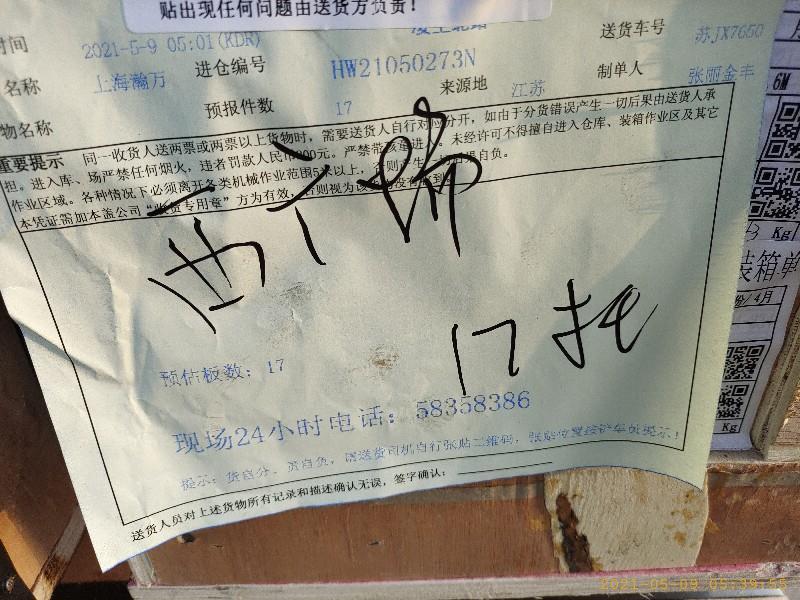 贴出现任何问题由送货方负责！
时间 2021-5-9 05:01(KDR) 送货车号 苏JX7650
名称 上海瀚万 进仓编号 HW21050273N 来源地 江苏 制单人 张丽金丰
物名称 预报件数 17
重要提示 同一收货人送两票或两票以上货物时，需要送货人自行对应分开，如由于分货错误产生一切后果由送货人承
担。进入库、场严禁任何烟火，违者罚款人民币 严禁带孩 未经许可不得擅自进入仓库、装箱作业区及其它
作业区域。各种情况下必须离开各类机械作业范围5米以上，否则产生 自负。
本凭证需加本盖公司“收货专用章”方为有效，否则视为该
17托
预估板数：17
现场24小时电话：58358386
提示：货自分、责自负，请送货司机自行张贴二维码，张贴位置 提示！
送货人员对上述货物所有记录和描述确认无误，签字确认：
6M
Kg
装箱单
4月
Kg
2021-05-09 05:39:55